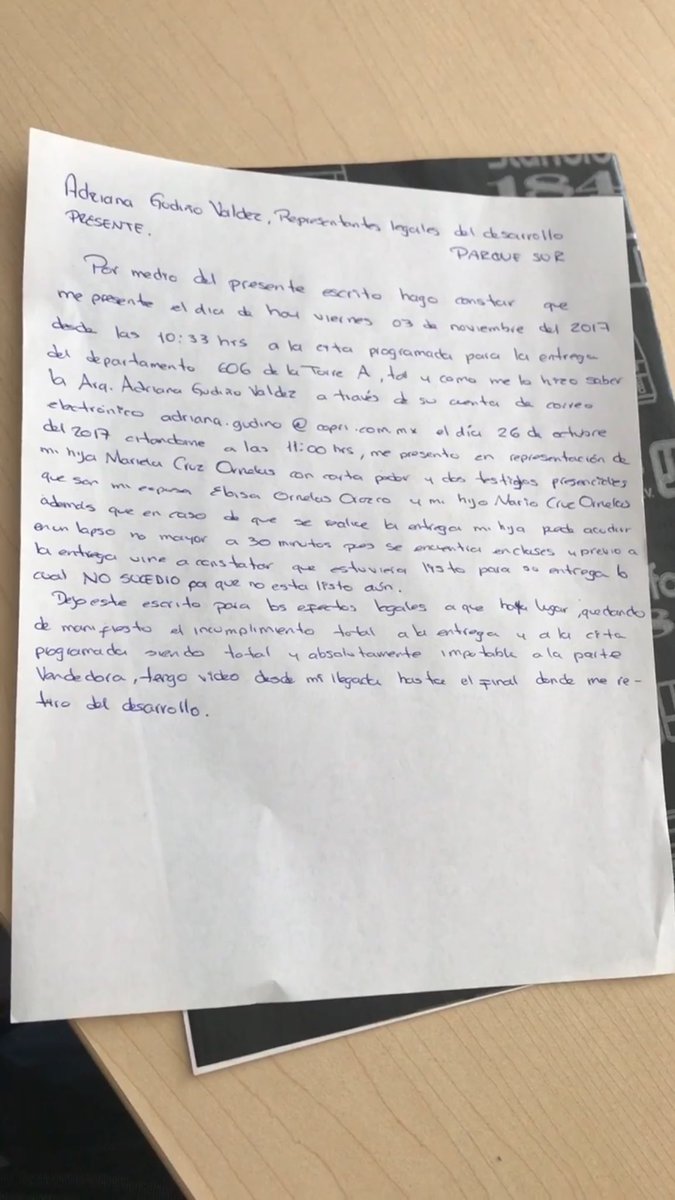 Adriana Gudiño Valdez, Representantes legales del desarrollo
PRESENTE.
PARQUE SUR
Por medio del presente escrito hago constar que
me presente el dia de hoy viernes 03 de noviembre del 2017
desde las 10:33 hrs a la cita programada para la entrega
del departamento 606 de la Torre A, tal y como me lo hizo saber
la Arq. Adriana Gudiño Valdez a través de su cuenta de correo
electrónico adriana.gudino@copri.com.mx el día 26 de octubre
del 2017 citandome a las 11:00 hrs, me presento en representación de
mi hija Mariela Cruz Ornelas con carta poder y dos testigos presenciales
que son mi esposa Elisa Ornelas Orozco y mi hijo Mario Cruz Ornelas
además que en caso de que se realice la entrega mi hija puede acudir
en un lapso no mayor a 30 minutos pues se encuentra en clases y previo a
la entrega vine a constatar que estuviera listo para su entrega lo
cual NO SUCEDIO pa que no esta listo aún.
Dejo este escrito para los efectos legales a que haya lugar, quedando
de manifiesto el incumplimiento total a la entrega y a la cita
programada siendo total y absolutamente imputable a la parte
Vendedora, tengo video desde mi llegada hasta el final donde me re-
tiro del desarrollo.
184